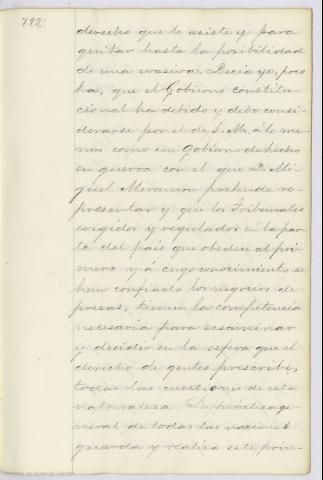 792
derecho que le asiste y para
quitar hasta la posibilidad
de una evasiva. Decia yo, poco
ha, que el Gobierno constitu-
cional ha debido y debe consi-
derarse por el de S. M. á lo me-
nos como un Gobierno de hecho
en guerra con el que D. Mi-
guel Miramon pretende re-
presentar y que los Tribunales
erigidos y regulados en la par-
te del país que obedece al pri-
mero y á cuyo conocimiento se
han confiado los negocios de
presas, tienen la competencia
necesaria para examinar
y decidir en la esfera que el
derecho de gentes prescribe,
todas las cuestiones de esta
naturaleza. La práctica ge-
neral de todas las naciones
guarda y realiza este prin-